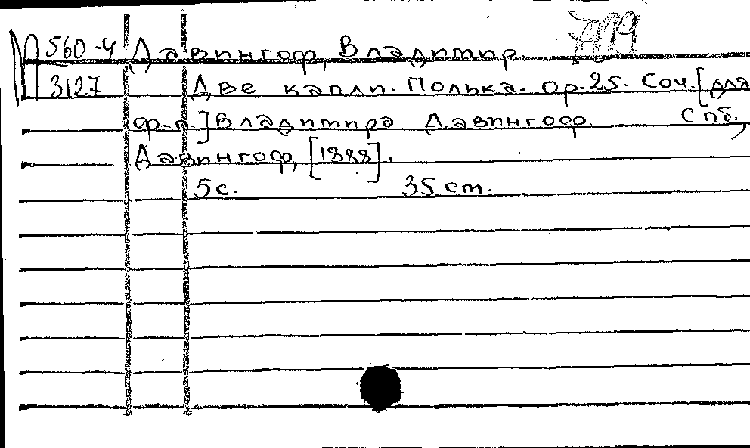 П 560-4 Давингоф, Владимир
3127 Две капли. Полька. Ор. 25. Соч. [для
ф-п] Владимира Давингоф. Спб,
Давингоф, [1888].
5 с. 35 см.